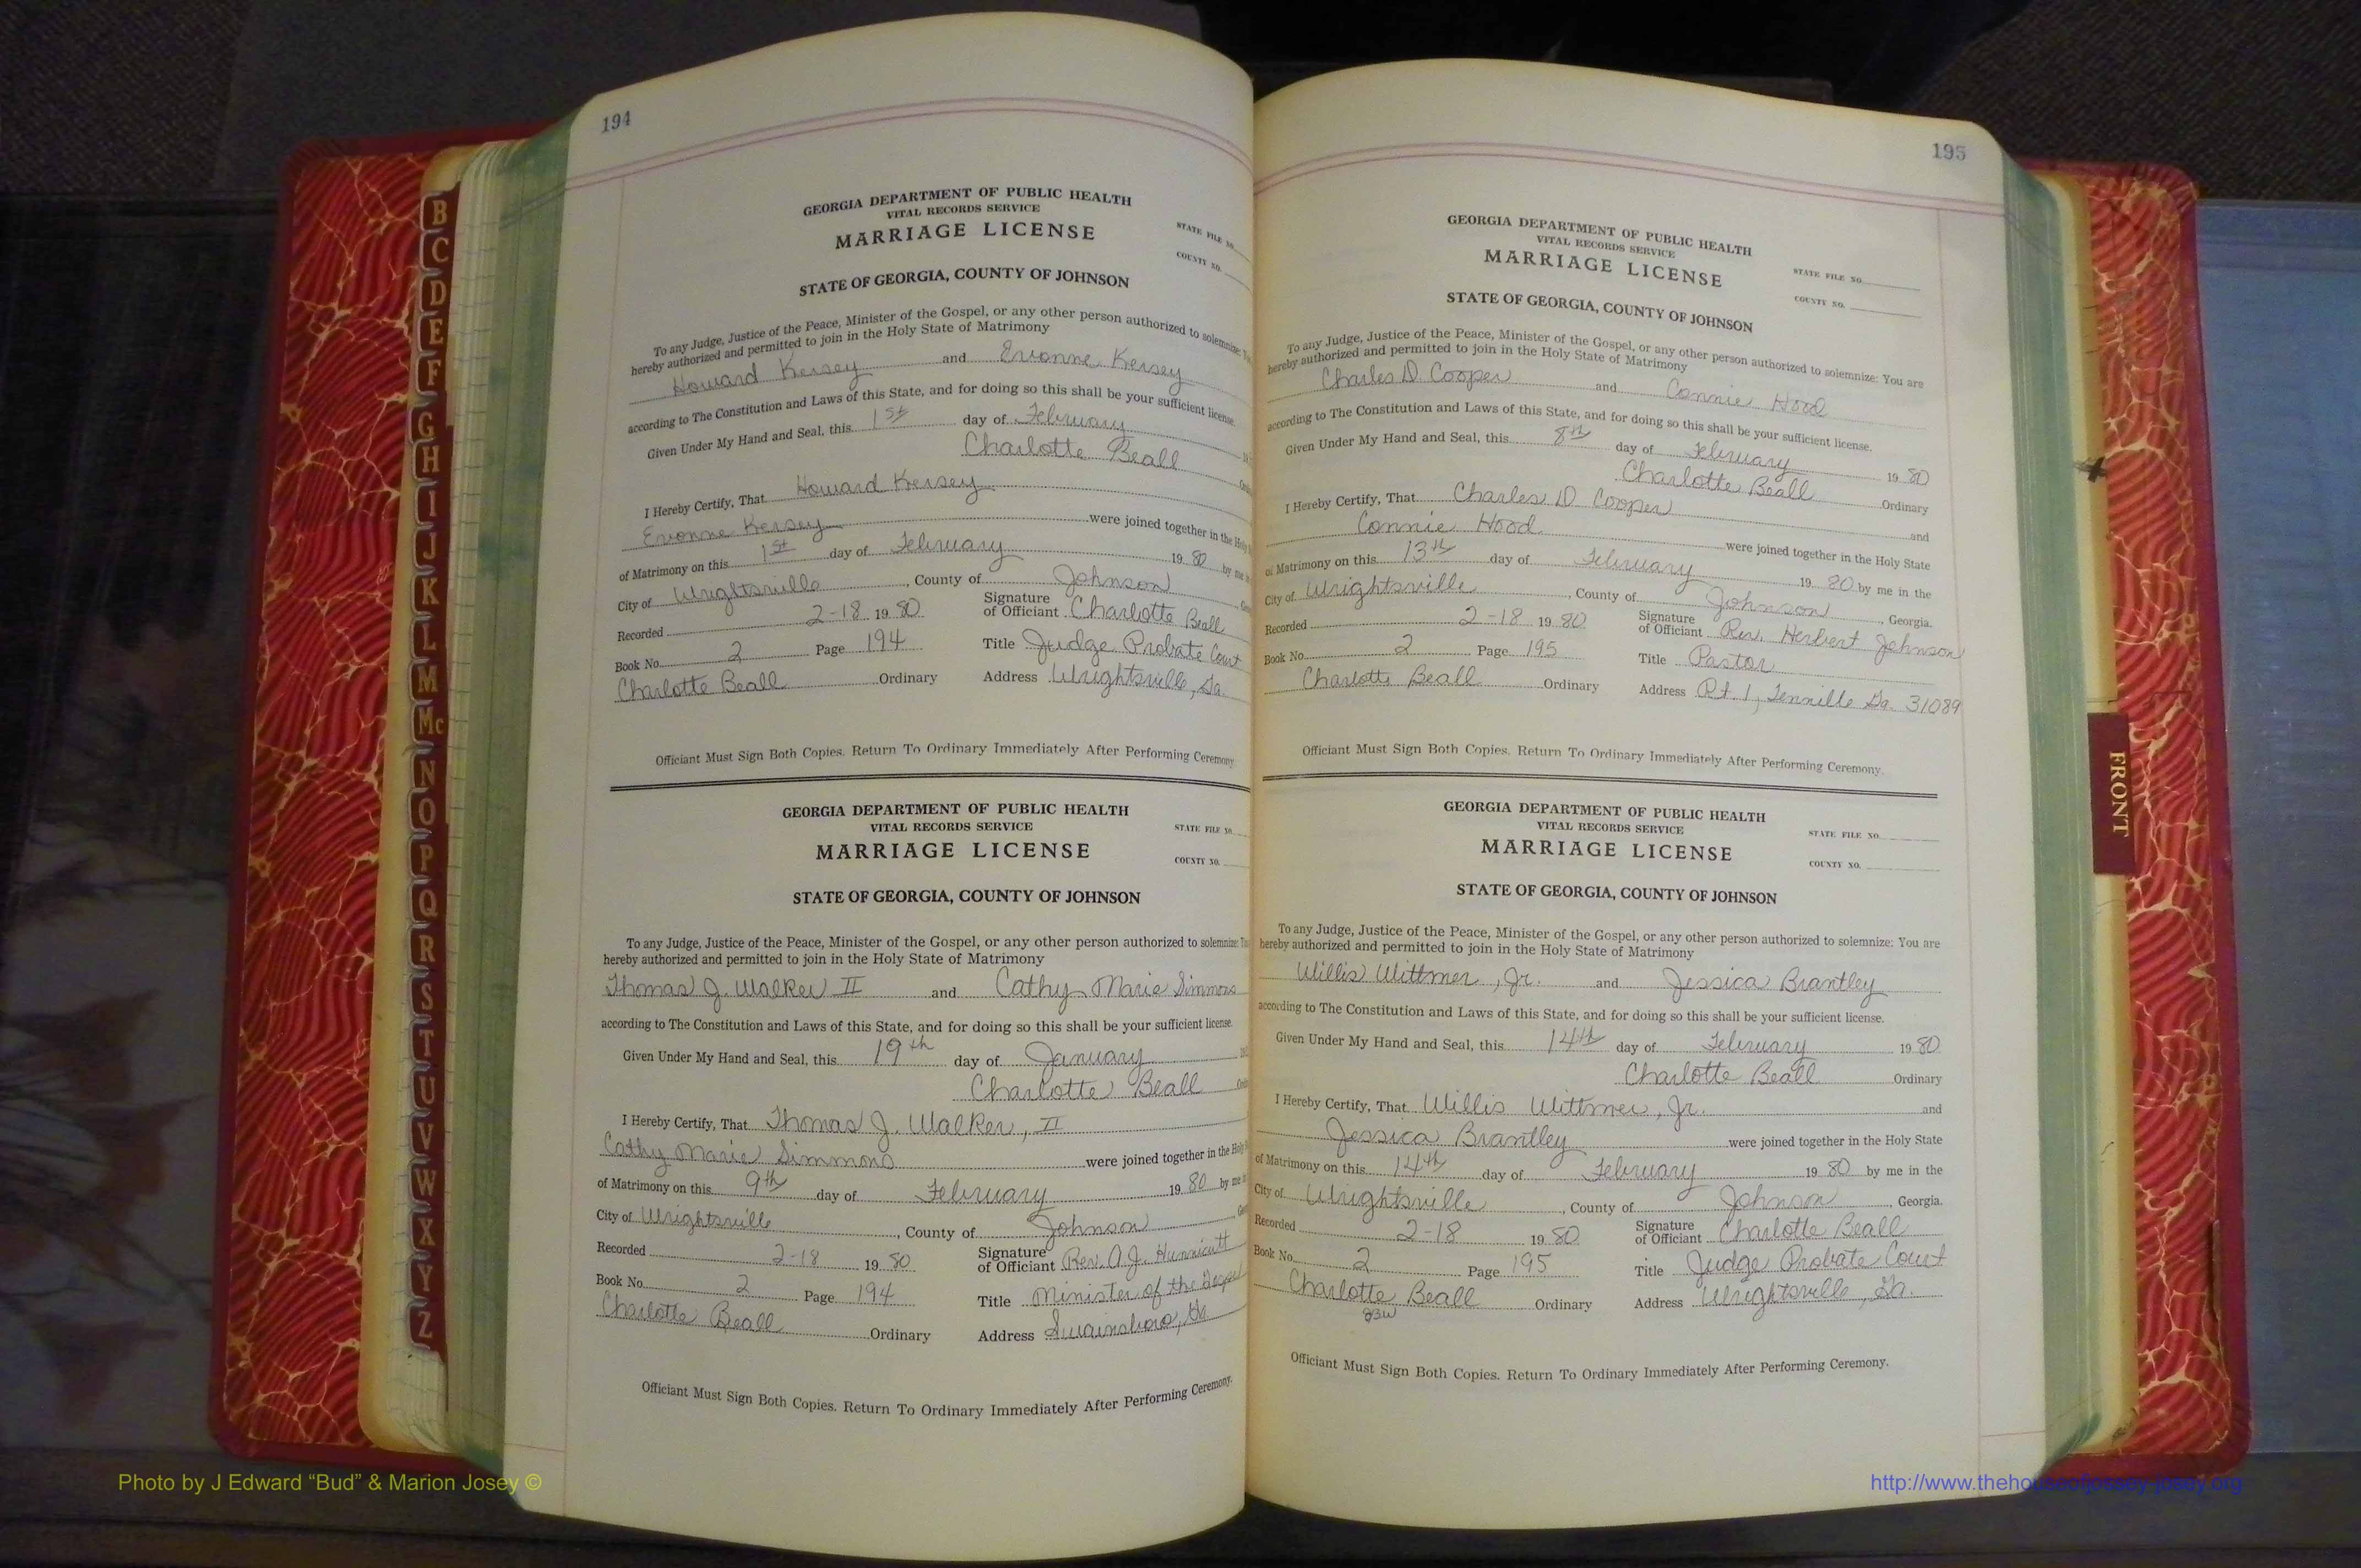 194
GEORGIA DEPARTMENT OF PUBLIC HEALTH
VITAL RECORDS SERVICE
MARRIAGE LICENSE
STATE FILE NO.
COUNTY NO.
STATE OF GEORGIA, COUNTY OF JOHNSON
To any Judge, Justice of the Peace, Minister of the Gospel, or any other person authorized to solemnize:
hereby authorized and permitted to join in the Holy State of Matrimony
Howard Kersey and Evonne Kersey
according to The Constitution and Laws of this State, and for doing so this shall be your sufficient license.
Given Under My Hand and Seal, this 1st day of February
Charlotte Beall
I Hereby Certify, That Howard Kersey
Evonne Kersey were joined together in the Holy
of Matrimony on this 1st day of February 19 80 by me
City of Wrightsville, County of Johnson
Recorded 2-18 19 80 Signature of Officiant Charlotte Beall
Book No. 2 Page 194 Title Judge Probate Court
Charlotte Beall Ordinary Address Wrightsville, Ga.
Officiant Must Sign Both Copies. Return To Ordinary Immediately After Performing Ceremony.
GEORGIA DEPARTMENT OF PUBLIC HEALTH
VITAL RECORDS SERVICE
MARRIAGE LICENSE
STATE FILE NO.
COUNTY NO.
STATE OF GEORGIA, COUNTY OF JOHNSON
To any Judge, Justice of the Peace, Minister of the Gospel, or any other person authorized to solemnize:
hereby authorized and permitted to join in the Holy State of Matrimony
Thomas J. Walker II and Cathy Marie Simmons
according to The Constitution and Laws of this State, and for doing so this shall be your sufficient license.
Given Under My Hand and Seal, this 19th day of January
Charlotte Beall
I Hereby Certify, That Thomas J. Walker, II
Cathy Marie Simmons were joined together in the Holy
of Matrimony on this 9th day of February 19 80 by me
City of Wrightsville, County of Johnson
Recorded 2-18 19 80 Signature of Officiant Rev. A.J. Hunnicutt
Book No. 2 Page 194 Title Minister of the Gospel
Charlotte Beall Ordinary Address Swainsboro, Ga
Officiant Must Sign Both Copies. Return To Ordinary Immediately After Performing Ceremony.
195
GEORGIA DEPARTMENT OF PUBLIC HEALTH
VITAL RECORDS SERVICE
MARRIAGE LICENSE
STATE FILE NO.
COUNTY NO.
STATE OF GEORGIA, COUNTY OF JOHNSON
To any Judge, Justice of the Peace, Minister of the Gospel, or any other person authorized to solemnize: You are
hereby authorized and permitted to join in the Holy State of Matrimony
Charles D. Cooper and Connie Hood
according to The Constitution and Laws of this State, and for doing so this shall be your sufficient license.
Given Under My Hand and Seal, this 8th day of February 19 80
Charlotte Beall Ordinary
I Hereby Certify, That Charles D Cooper
Connie Hood and
were joined together in the Holy State
of Matrimony on this 13th day of February 19 80 by me in the
City of Wrightsville, County of Johnson, Georgia.
Recorded 2-18 19 80 Signature of Officiant Rev. Herbert Johnson
Book No. 2 Page 195 Title Pastor
Charlotte Beall Ordinary Address Rt. 1, Tennille Ga. 31089
Officiant Must Sign Both Copies. Return To Ordinary Immediately After Performing Ceremony.
GEORGIA DEPARTMENT OF PUBLIC HEALTH
VITAL RECORDS SERVICE
MARRIAGE LICENSE
STATE FILE NO.
COUNTY NO.
STATE OF GEORGIA, COUNTY OF JOHNSON
To any Judge, Justice of the Peace, Minister of the Gospel, or any other person authorized to solemnize: You are
hereby authorized and permitted to join in the Holy State of Matrimony
Willis Wittmer, Jr. and Jessica Brantley
according to The Constitution and Laws of this State, and for doing so this shall be your sufficient license.
Given Under My Hand and Seal, this 14th day of February 19 80
Charlotte Beall Ordinary
I Hereby Certify, That Willis Wittmer, Jr. and
Jessica Brantley were joined together in the Holy State
of Matrimony on this 14th day of February 19 80 by me in the
City of Wrightsville, County of Johnson, Georgia.
Recorded 2-18 19 80 Signature of Officiant Charlotte Beall
Book No. 2 Page 195 Title Judge Probate Court
Charlotte Beall Ordinary Address Wrightsville, Ga.
Officiant Must Sign Both Copies. Return To Ordinary Immediately After Performing Ceremony.
B
C
D
E
F
G
H
I
J
K
L
M
Mc
N
O
P
Q
R
S
T
U
V
W
X
Y
Z
FRONT
Photo by J Edward “Bud” & Marion Josey ©
http://www.thehouseofjossey-josey.org